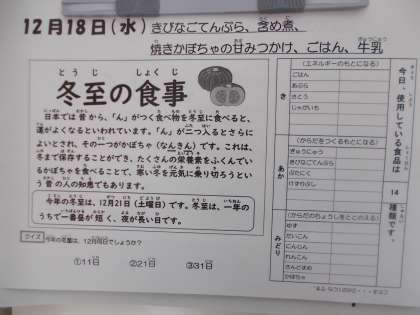 12月18日(水) きびなごてんぷら、含め煮、
焼きかぼちゃの甘みつかけ、ごはん、牛乳
冬至の食事
日本では昔から、「ん」がつく食べ物を冬至に食べると、
運がよくなるといわれています。「ん」が二つ入るとさらに
よいとされ、その一つがかぼちゃ(なんきん)です。これは、
冬まで保存することができ、たくさんの栄養素をふくんでい
るかぼちゃを食べることで、寒い冬を元気に乗り切ろうとい
う昔の人の知恵でもあります。
今年の冬至は、12月21日(土曜日)です。冬至は、一年の
うちで一番昼が短く、夜が長い日です。
クイズ
今年の冬至は、12月何日でしょうか?
①11日 ②21日 ③31日
今日、使用している食品は
14
種類です。
き
(エネルギーのもとになる)
ごはん
あぶら
さとう
じゃがいも
あか
(からだをつくるもとになる)
ぎゅうにゅう
きびなごてんぷら
ぶたにく
けずりぶし
みどり
(からだのちょうしをととのえる)
ゆず
だいこん
にんじん
れんこん
さんどまめ
かぼちゃ